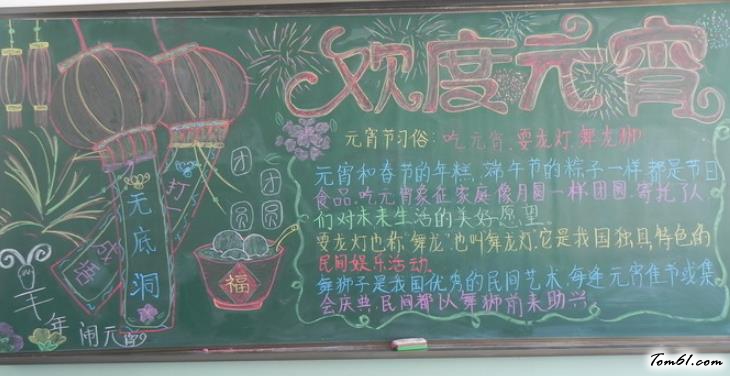 欢度元宵
元宵节习俗：吃元宵、耍龙灯、舞龙狮
元宵和春节的年糕，端午节的粽子一样，都是节日
食品。吃元宵象征家庭像月圆一样团圆，寄托了人
们对未来生活的美好愿望。
耍龙灯也称“舞龙”，也叫舞龙灯。它是我国独具特色的
民间娱乐活动。
舞狮子是我国优秀的民间艺术，每逢元宵佳节或集
会庆典，民间都以舞狮前来助兴。
团团
圆圆
打一
成语
无底洞
福
羊年
闹元宵
Tom61.com